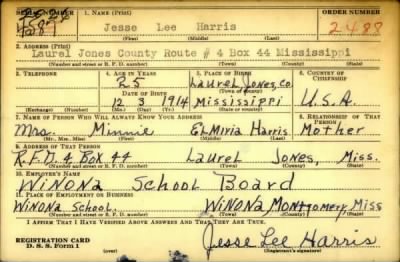 SERIAL NUMBER 1. NAME (Print) ORDER NUMBER
Jesse Lee Harris 2488
(First) (Middle) (Last)
2. ADDRESS (Print)
Laurel Jones County Route # 4 Box 44 Mississippi
(Number and street or R. F. D. number) (Town) (County) (State)
3. TELEPHONE 4. AGE IN YEARS 5. PLACE OF BIRTH 6. COUNTRY OF CITIZENSHIP
25 Laurel Jones, Co.
DATE OF BIRTH (Town or county)
12 3 1914 Mississippi U.S.A.
(Exchange) (Number) (Mo.) (Day) (Yr.) (State or country)
7. NAME OF PERSON WHO WILL ALWAYS KNOW YOUR ADDRESS 8. RELATIONSHIP OF THAT PERSON
Mrs. Minnie Elmiria Harris Mother
(Mr., Mrs., Miss) (First) (Middle) (Last)
9. ADDRESS OF THAT PERSON
R.F.D. 4 Box 44 Laurel Jones, Miss.
(Number and street or R. F. D. number) (Town) (County) (State)
10. EMPLOYER'S NAME
Winona School Board
11. PLACE OF EMPLOYMENT OR BUSINESS
Winona School. Winona Montgomery, Miss
(Number and street or R. F. D. number) (Town) (County) (State)
I AFFIRM THAT I HAVE VERIFIED ABOVE ANSWERS AND THAT THEY ARE TRUE.
REGISTRATION CARD
D. S. S. Form 1
Jesse Lee Harris
(Registrant's signature)